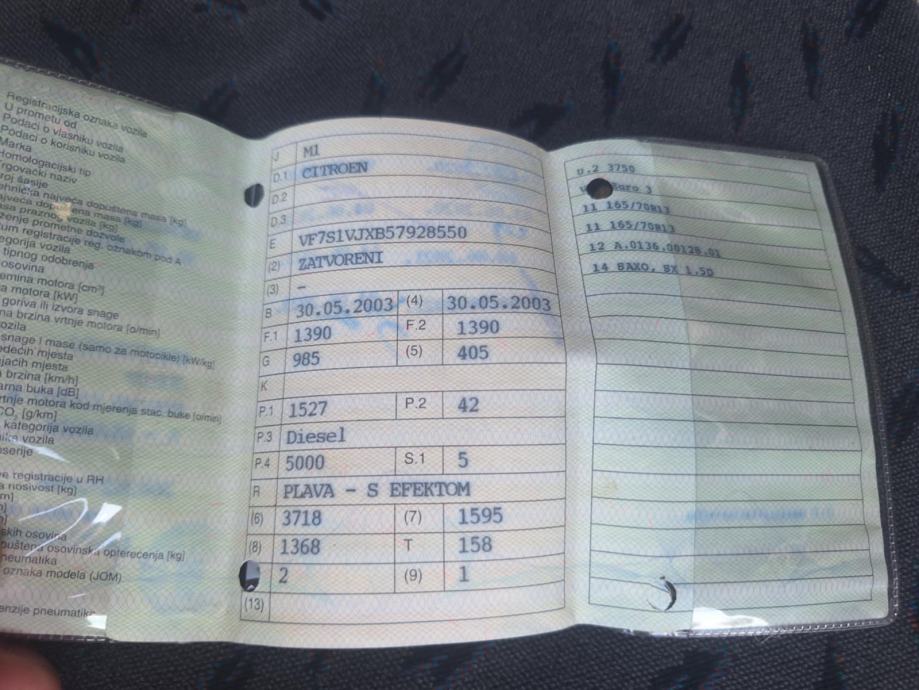 Registracijska oznaka vozila
U prometu od
Podaci o vlasniku vozila
Podaci o korisniku vozila
Marka
Homologacijski tip
Trgovački naziv
broj šasije
tehnička najveća dopuštena masa [kg]
najveća dopuštena masa [kg]
masa praznog vozila [kg]
ženje prometne dozvole
tum registracije reg. oznakom pod A
tegorija vozila
tipnog odobrenje
osovina
emina motora [cm³]
a motora [kW]
goriva ili izvora snage
na brzina vrtnje motora [o/min]
ozila
snage i mase (samo za motocikle) [kW/kg]
edećih mjesta
jaćih mjesta
brzina [km/h]
arna buka [dB]
rtnje motora kod mjerenja stac. buke [o/min]
CO₂ [g/km]
kategorija vozila
nika vozila
serije
ve registracije u RH
a nosivost [kg]
m]
]
]
skih osovina
puštena osovinska opterećenja [kg]
neumatika
oznaka modela (JOM)
enzije pneumatika
J M1
D.1 CITROEN
D.2
D.3
E VF7S1VJXB57928550
(2) ZATVORENI
(3) –
B 30.05.2003 (4) 30.05.2003
F.1 1390 F.2 1390
G 985 (5) 405
K
P.1 1527 P.2 42
P.3 Diesel
P.4 5000 S.1 5
R PLAVA - S EFEKTOM
(6) 3718 (7) 1595
(8) 1368 T 158
2 (9) 1
(13)
U.2 3750
Euro 3
11 165/70R13
11 165/70R13
12 A.0136.00128.01
14 SAXO, SX 1.5D